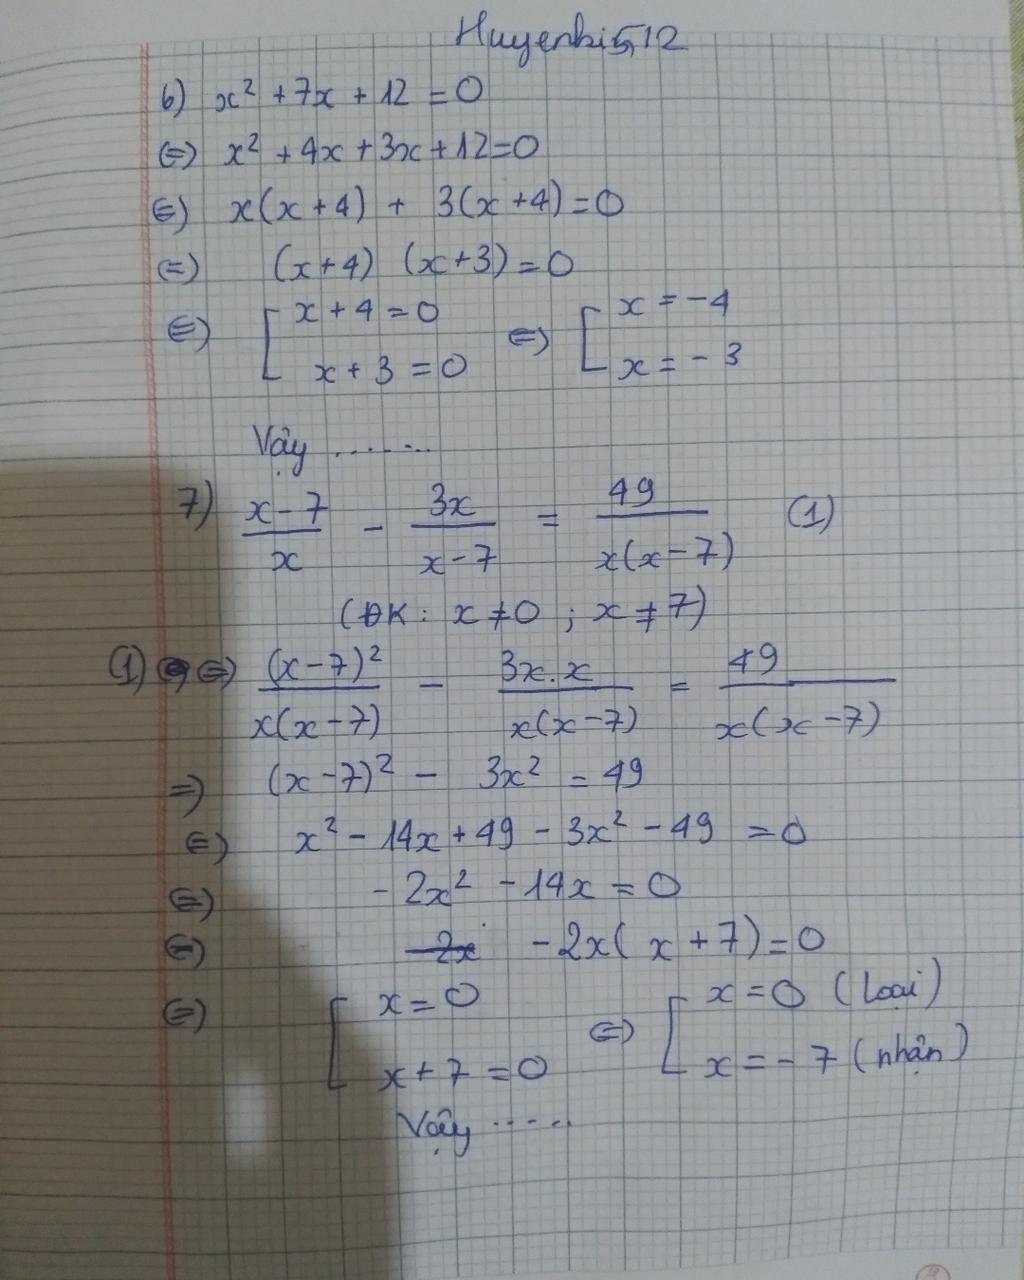 Huyenbi512
6) x² + 7x + 12 = 0
⇔ x² + 4x + 3x + 12 = 0
⇔ x(x + 4) + 3(x + 4) = 0
⇔ (x + 4) (x + 3) = 0
⇔ [ x + 4 = 0 ⇔ [ x = -4
x + 3 = 0 x = -3
Vậy ........
7) (x - 7)/x - 3x/(x - 7) = 49/(x(x - 7)) (1)
(ĐK: x ≠ 0 ; x ≠ 7)
(1) ⇔ (x - 7)²/(x(x - 7)) - 3x.x/(x(x - 7)) = 49/(x(x - 7))
⇒ (x - 7)² - 3x² = 49
⇔ x² - 14x + 49 - 3x² - 49 = 0
⇔ -2x² - 14x = 0
⇔ -2x( x + 7) = 0
⇔ [ x = 0 ⇔ [ x = 0 (loại)
x + 7 = 0 x = -7 (nhận)
Vậy .....